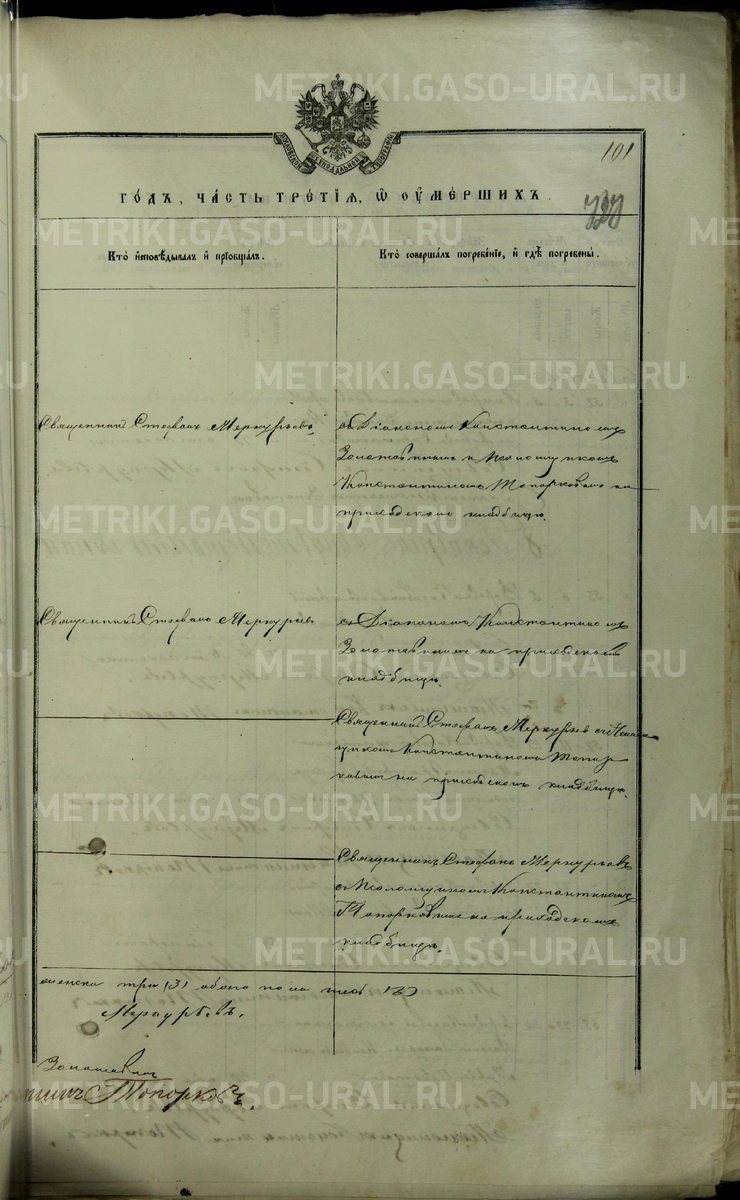 METRIKI.GASO-URAL.RU
МОСКОВСКОЙ СѴНОДАЛЬНОЙ ТИПОГРАФІИ
101
го́дъ, ча́сть тре́тїѧ, ѡ҆ ᲂу҆ме́ршихъ.
Кто̀ и҆сповѣ́дывалъ и҆ прїобща́лъ.
Кто̀ соверша́лъ погребе́нїе, и҆ гдѣ̀ погребены̀.
Священникъ Стефанъ Меркурьевъ
съ Діакономъ Константиномъ
Золотавинымъ и Псаломщикомъ
Константиномъ Топорковымъ на
приходскомъ кладбищѣ.
Священникъ Стефанъ Меркурьевъ
съ Діакономъ Константиномъ
Золотавинымъ на приходскомъ
кладбищѣ.
Священникъ Стефанъ Меркурьевъ съ Псалом
щикомъ Константиномъ Топор
ковымъ на приходскомъ кладбищѣ.
Священникъ Стефанъ Меркурьевъ
съ Псаломщикомъ Константиномъ
Топорковымъ на приходскомъ
кладбищѣ.
женска три (3) обоего пола
Меркурьевъ.
Золотавинъ
Топорковъ.